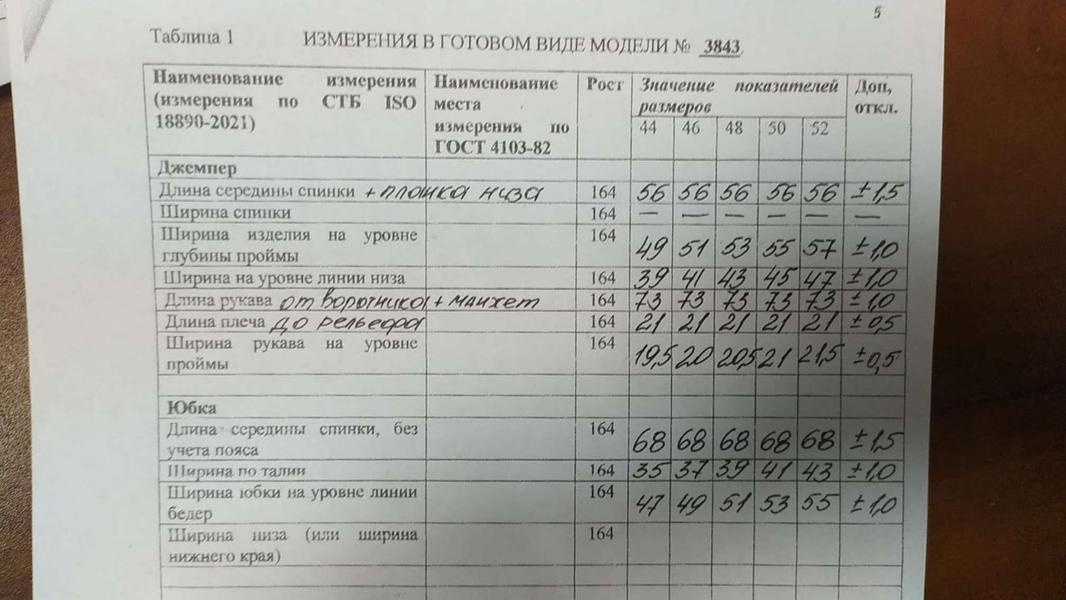 5
Таблица 1 ИЗМЕРЕНИЯ В ГОТОВОМ ВИДЕ МОДЕЛИ № 3843
Наименование измерения (измерения по СТБ ISO 18890-2021) Наименование места измерения по ГОСТ 4103-82 Рост Значение показателей размеров Доп, откл.
44 46 48 50 52
Джемпер
Длина середины спинки + планка низа 164 56 56 56 56 56 ±1,5
Ширина спинки 164 — — — — — —
Ширина изделия на уровне глубины проймы 164 49 51 53 55 57 ±1,0
Ширина на уровне линии низа 164 39 41 43 45 47 ±1,0
Длина рукава от воротника + манжет 164 73 73 73 73 73 ±1,0
Длина плеча до рельефа 164 21 21 21 21 21 ±0,5
Ширина рукава на уровне проймы 164 19,5 20 20,5 21 21,5 ±0,5
Юбка
Длина середины спинки, без учета пояса 164 68 68 68 68 68 ±1,5
Ширина по талии 164 35 37 39 41 43 ±1,0
Ширина юбки на уровне линии бедер 164 47 49 51 53 55 ±1,0
Ширина низа (или ширина нижнего края) 164